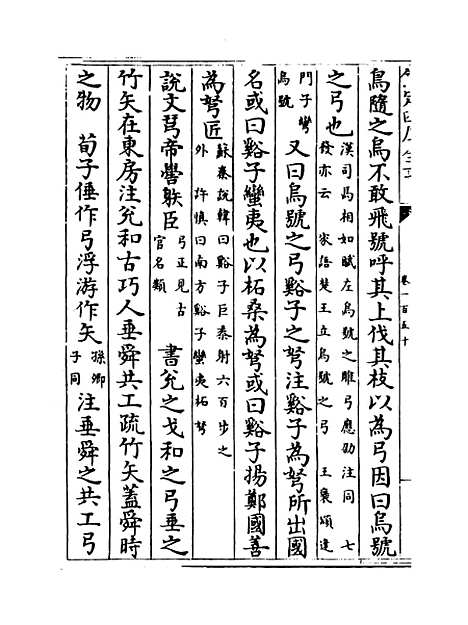 烏隨之烏不敢飛號呼其上伐其枝以為弓因曰烏號
之弓也漢司馬相如賦左烏號之雕弓應劭注同 七發亦云 家語楚王亡烏號之弓 王襃頌逢
門子彎烏號 又曰烏號之弓谿子之弩注谿子為弩所出國
名或曰谿子蠻夷也以柘桑為弩或曰谿子揚鄭國善
為弩匠蘇秦說韓曰谿子巨黍射六百步之外 許慎曰南方谿子蠻夷柘弩
說文芎帝嚳躲臣弓正見古官名類 書兊之戈和之弓垂之
竹矢在東房注兊和古巧人垂舜共工疏竹矢蓋舜時
之物 荀子倕作弓浮游作矢孫卿子同 注垂舜之共工弓
卷一百五十